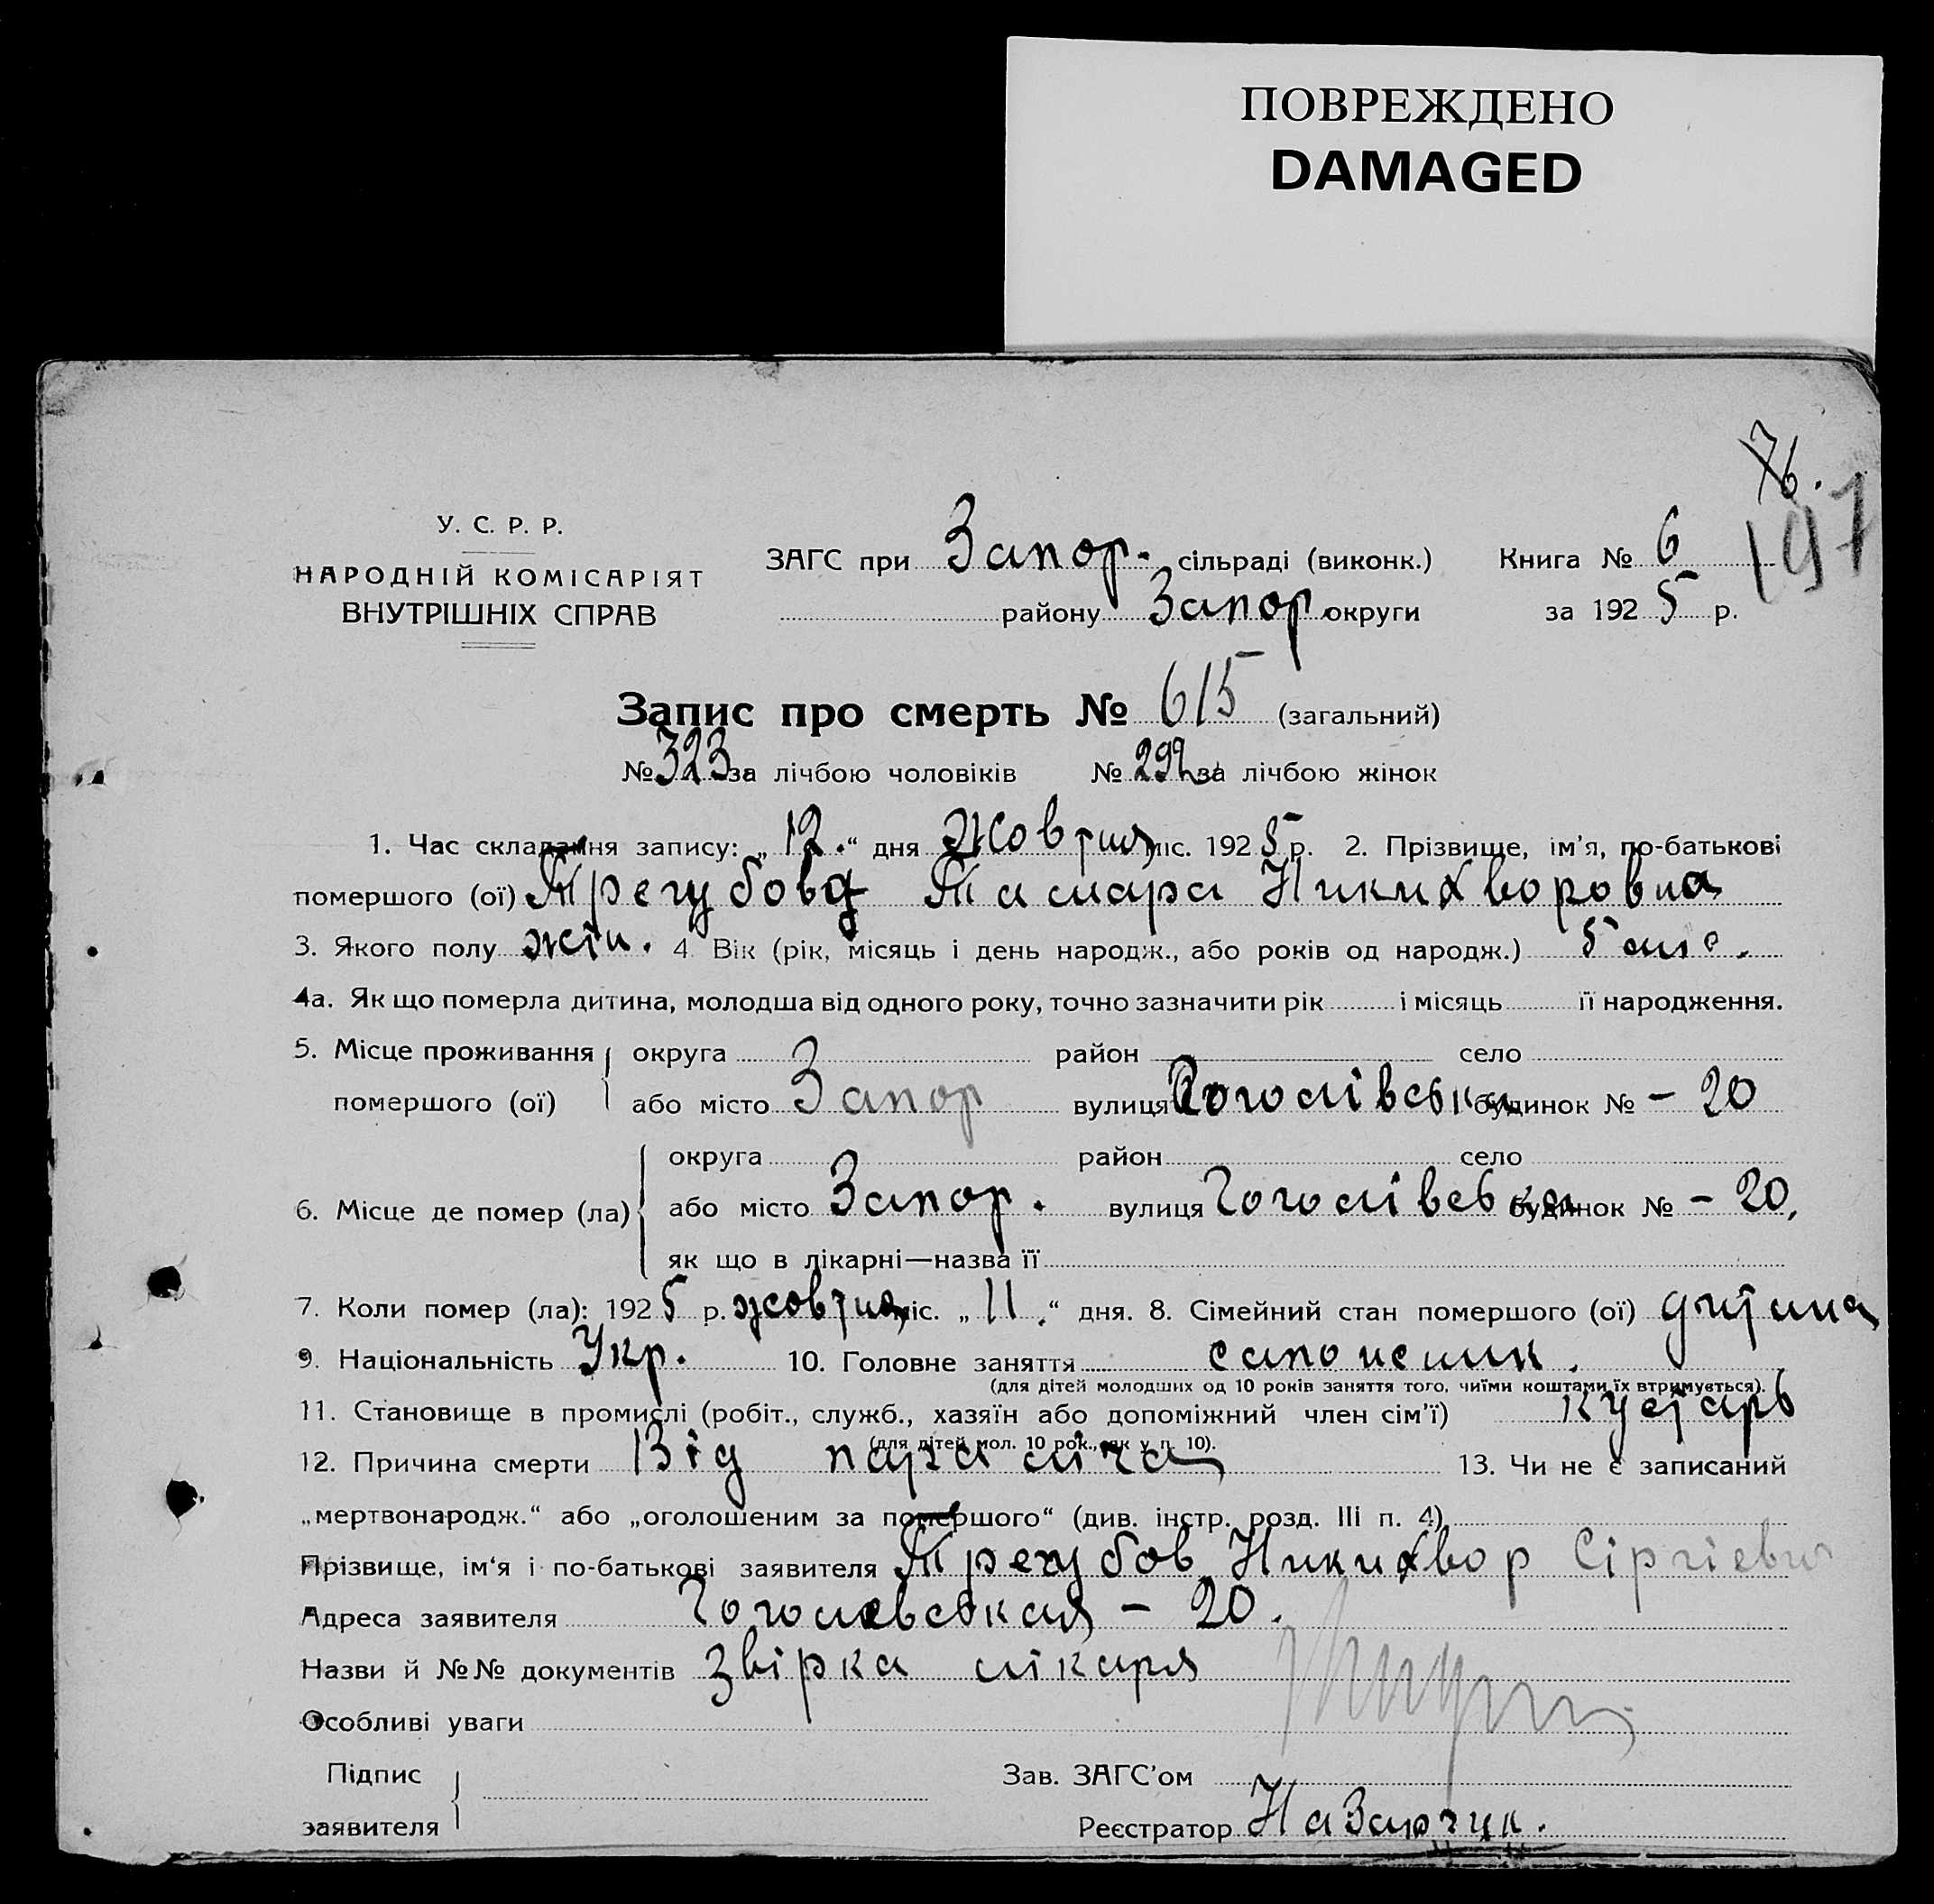 ПОВРЕЖДЕНО
DAMAGED
76.
197
У. С. Р. Р.
НАРОДНІЙ КОМІСАРІЯТ
ВНУТРІШНІХ СПРАВ
ЗАГС при Запор. сільраді (виконк.) Книга № 6
району Запор округи за 1925 р.
Запис про смерть № 615 (загальний)
№ 323 за лічбою чоловіків № 292 за лічбою жінок
1. Час складання запису: „12.“ дня Жовтня міс. 1925 р. 2. Прізвище, ім'я, по-батькові
помершого (ої) Трегубова Тамара Никихворовна
3. Якого полу жін. 4 Вік (рік, місяць і день народж., або років од народж.) 5
4а. Як що померла дитина, молодша від одного року, точно зазначити рік і місяць її народження.
5. Місце проживання округа район село
помершого (ої) або місто Запор вулиця Гоголівська будинок № – 20
округа район село
6. Місце де помер (ла) або місто Запор. вулиця Гоголівська будинок № – 20,
як що в лікарні—назва її
7. Коли помер (ла): 1925 р. жовтня міс. „11.“ дня. 8. Сімейний стан помершого (ої) дитина
9. Національність Укр. 10. Головне заняття сапожник.
(для дітей молодших од 10 років заняття того, чиїми коштами їх втримується).
11. Становище в промислі (робіт., служб., хазяїн або допоміжний член сім'ї) кустарь
(для дітей мол. 10 рок., як у п. 10).
12. Причина смерти Від параліча 13. Чи не є записаний
„мертвонародж.“ або „оголошеним за помершого“ (див. інстр. розд. III п. 4)
Прізвище, ім'я і по-батькові заявителя Трегубов Никихвор Сіргієвич
Адреса заявителя Гоголевськая – 20.
Назви й №№ документів звірка лікаря
Особливі уваги
Підпис Зав. ЗАГС'ом
заявителя Реєстратор Назарчук.